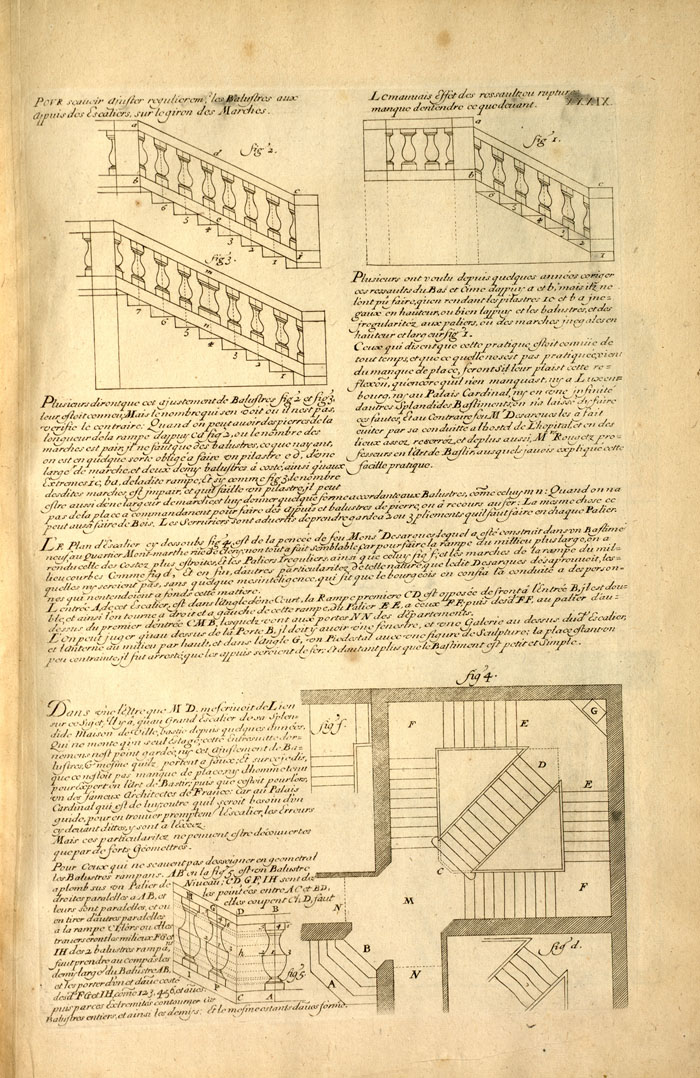 Pour sçavoir ajuster regulierem.t les Balustres aux
appuis des Escaliers, sur le giron des Marches.
Le mauvais Effet des ressaults ou ruptures
manque dentendre ce que devant.
fig 2.
fig 1.
fig 3.
Plusieurs ont voulu depuis quelques années coriger
ces ressaults du Bas et Cime dappuy a et b, mais ilz ne
lont pû faire, quen rendant les pilastres 1c et b a jne-
gaux en hauteur, ou bien lappuy et les balustres, et des
jrregularitez aux paliers, ou des marches jnegales en
hauteur et largeur fig 1.
Ceux qui disent que cette pratique estoit connuë de
tout temps, et que ce quelle ne soit pas pratiquée, vient
du manque de place, feront sil leur plaist cette re-
flexion, quencore quil nen manquast, ny a Luxem-
bourg, ny au Palais Cardinal, ny en une infinité
dautres Splandides Bastiments, on na laissé dy faire
ces fautes, Et au Contraire feu M.r Desargues la fait
éuiter par sa conduitte a lhostel de Lhopital, et en des
lieux assez resserréz, et deplus aussi, M.r Rouget pro-
fesseur en lart de Bastir, ausquels javois expliqué cette
facille pratique.
Plusieurs diront que cet ajustement de Balustres fig 2 et fig 3,
leur estoit connu, Mais le nombre qui sen voit ou il nest pas,
verifie le contraire. Quand on peut avoir des pierres de la
longueur de la rampe dappuy Cd fig 2, ou le nombre des
marches est pair, jl ne faut que des balustres, ce que nayant,
on est en quelque sorte obligé a faire un pilastre e d, dune
large de marche, et deux demy balustres a costé, ainsi quaux
Extremes 1c, ba, deladite rampe, Et sy comme fig 3 le nombre
desdites marches est jmpair, et quil faille un pilastre, jl peut
estre aussi dune largeur de marche, et luy donner quelque forme accordante aux Balustres, côme celuy m n: Quand on na
pas de la place a commandement pour faire des appuis et balustres de pierre, on a recours au fer: La mesme chose ce
peut aussi faire de Bois. Les Serruriers sont advertis de prendre garde a 2 ou 3 pliements quil faut faire en chaque Palier.
Le Plan d'Escalier cy dessoubs fig 4, est de la pencée de feu Mons.r Desargues, lequel a esté construit dans un Bastime.t
neuf, au Quartier Montmarthe ruë de Clery, non tout a fait semblable; car pour faire la rampe du millieu plus large, on a
rendu celle des costez plus estroites, et les Paliers Jrreguliers, ainsi que celuy fig f, et les marches de la rampe du mil-
lieu courbes Comme fig d, Et en fin, dautres particularitez de telle nature que ledit Desargues desaprouvoit, les-
quelles ny seroient pas, sans quelque mesintelligence, qui fit que le bourgeois en confia la conduite a des person-
nes qui nentendoient a fonds cette mattiere.
Lentrée A, de cet Escalier, est dans langle dune Court, la Rampe premiere CD, est opposée de front à lentrée B, jl est dou-
ble, et ainsi lon tourne a droit et a gauche de cette rampe, du Palier E E, a ceux F F, puis desd. FF. au palier d'au-
dessus du premier dentrée CMB, lesquels vont aux portes NN des départements.
Lon peut juger quau dessus de la Porte B, jl doit y avoir une fenestre, et une Galerie au dessus dud.t Escalier,
et lanterne au milieu par hault, et dans langle G, un Piedestal avec une figure de Sculpture; la place estant un
peu contrainte, jl fut arresté que les appuis seroient de fer. Et dautant plus que le Bastiment est petit et simple.
fig 4.
Dans une lettre que M. D. mescrivoit de Lion
sur ce Sujet, Il y a, quau Grand Escalier de sa Splen-
dide Maison de Ville, bastie depuis quelques années,
Qui ne monte qun seul Estage,
nement nest point gardée, ny cet ajustement de Ba-
lustres, Et mesme quilz portent a faux; Et sur ce je dis,
que ce nestoit pas manque de place, ny dhomme tenu
pour expert en lart de Bastir, puis que cestoit pour lors,
un des fameux Architectes de France: car au Palais
Cardinal qui est de luy,
guide, pour en trouver promptem.t lescalier, les Erreurs
cy devant dittes, y sont a lexcez.
Mais ces particularitez ne peuvent estre découvertes
que par de forts Géometres.
Pour Ceux qui ne sçauent pas desseigner en geometral
les Balustres rampans. AB en la fig 5, est un Balustre
aplomb sus un Palier de Niveau, CD, GF, IH sont des
droites paralelles a AB, et les pointées entre AC et BD,
leurs sont paralelles, et ou elles coupent CD, faut
en tirer dautres paralelles
à la rampe CE, lors ou elles
traverseront les milieux FG et
IH des 2 balustres rampa.s,
faut prendre au compas les
demy large du Balustre AB,
et les porter d'un et dautre costé
desd.s FG et IH, côme 1 2 3, 4 5 6, et aues.
puis par ces Extremitez contourner les
Balustres entiers, et ainsi les demis: Et le mesme estants dans une forme.
fig f.
fig 5
fig d.
F
E
G
D
E
C
F
M
N
B
A
N